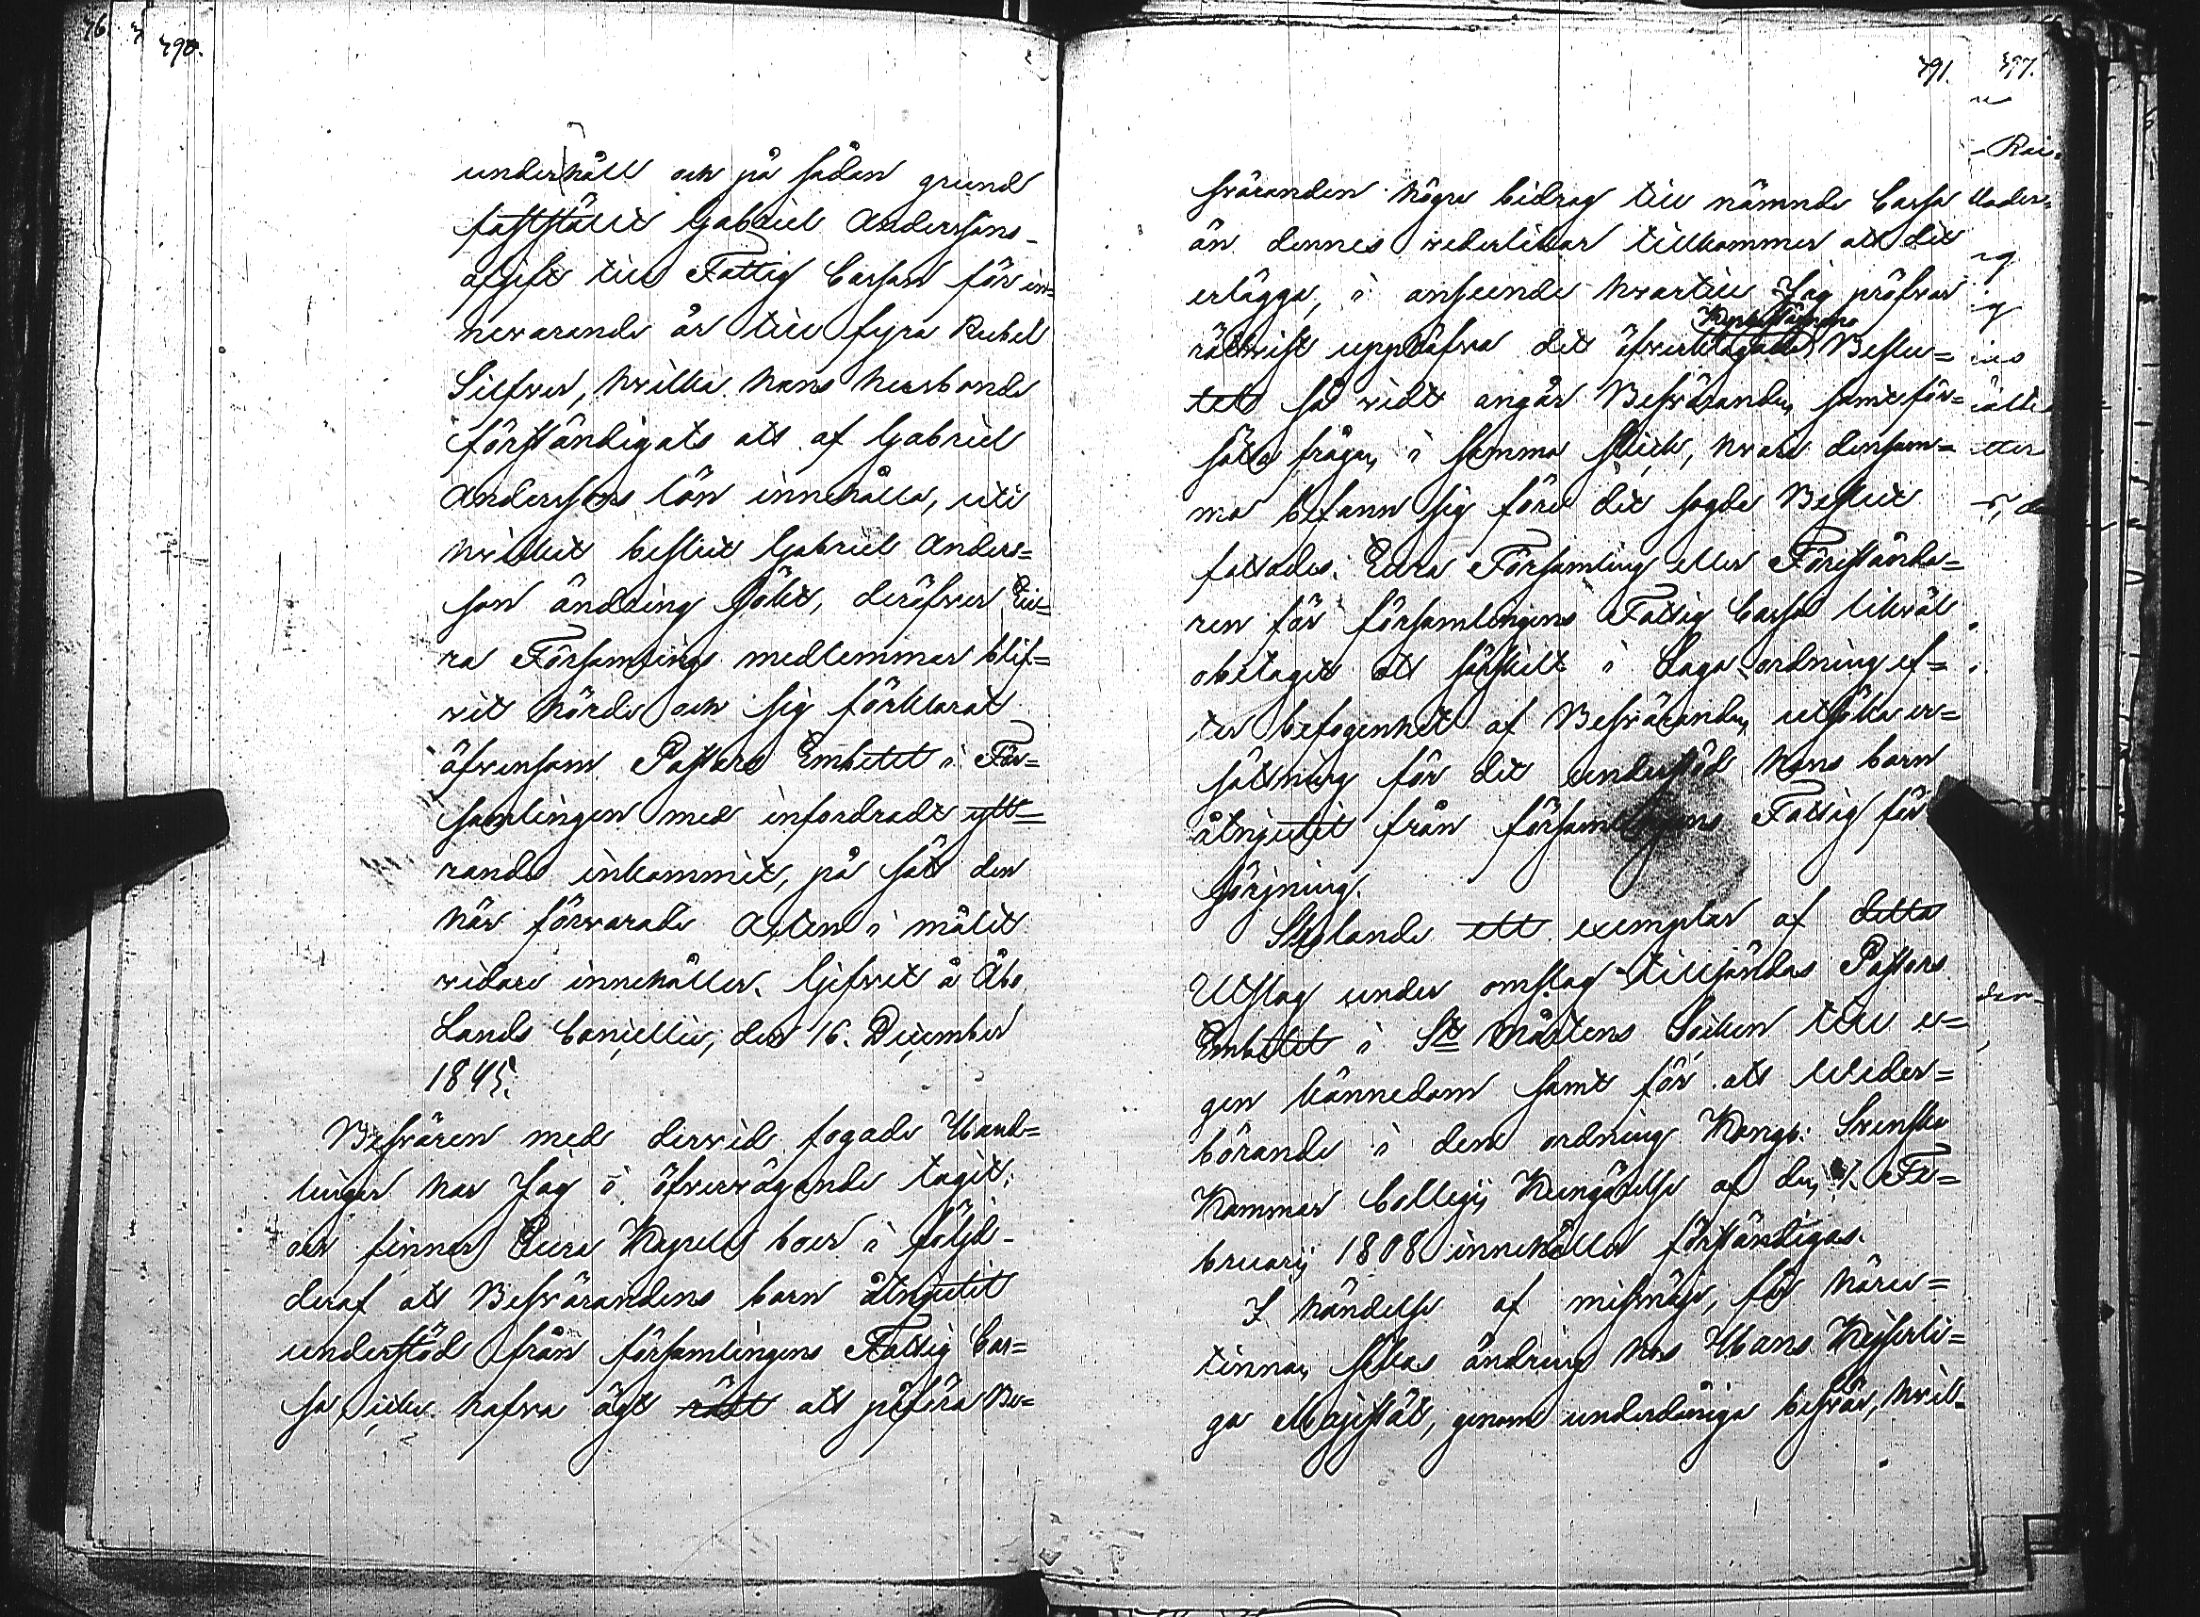 790.
underhåll och på sådan grund
fastställt Gabriel Anderssons
afgift till Fattig Cassan för in-
nevarande år till fyra Rubel
Silfver, hvilka hans husbonde
förständigats att af Gabriel
Anderssons lön innehålla, uti
hvilket beslut Gabriel Anders-
son ändring sökt, deröfver Eu-
ra Församlings medlemmar blif-
vit hörde och sig förklarat
äfvensom Pastors Embetet i För-
samlingen med infordradt ytt-
rande inkommit, på sätt den
här förvarade Acten i målet
vidare innehåller. Gifvet å Åbo
Lands Cancellie, den 16. December
1845.
Besvären med dervid fogade Hand-
lingar har Jag i öfvervägande tagit;
och finner Eura Kapell boer i följd
deraf att Besvärandens barn åtnjutit
understöd från församlingens Fattig Cas-
sa, icke hafva ägt rätt att påföra Be-
791. 397.
sväranden högre bidrag till nämnde Cassa
än dennes vederlikar tillkommer att det
erlägga, i anseende hvartill Jag pröfvar
Kyrkostämmo
rättvist upphäfva det öfverklagade Beslu-
tet så vidt angår Besväranden, samt för-
sätta frågan i samma skick, hvari densam-
ma befann sig förr det sagda Beslut
fattades. Eura Församling eller Förestånda-
ren för församlingens Fattig Cassa likväl
obetagit att särskilt i Laga ordning ef-
ter befogenhet af Besväranden utsöka er-
sättning för det understöd hans barn
åtnjutit från församlingens Fattig för
sörjning.
Skolande ett exemplar af detta
Utslag under omslag tillsändas Pastors
Embetet i S:t Mårtens Socken till e-
gen kännedom samt för att Weder-
börande i den ordning Kongl: Svenska
Kammar Collegii Kungörelse af den Fe-
bruarii 1808 innehåller förständigas.
I händelse af missnöje, får häru-
tinnan sökas ändring hos Hans Kejserli-
ga Majestät, genom underdåniga besvär, hvil-